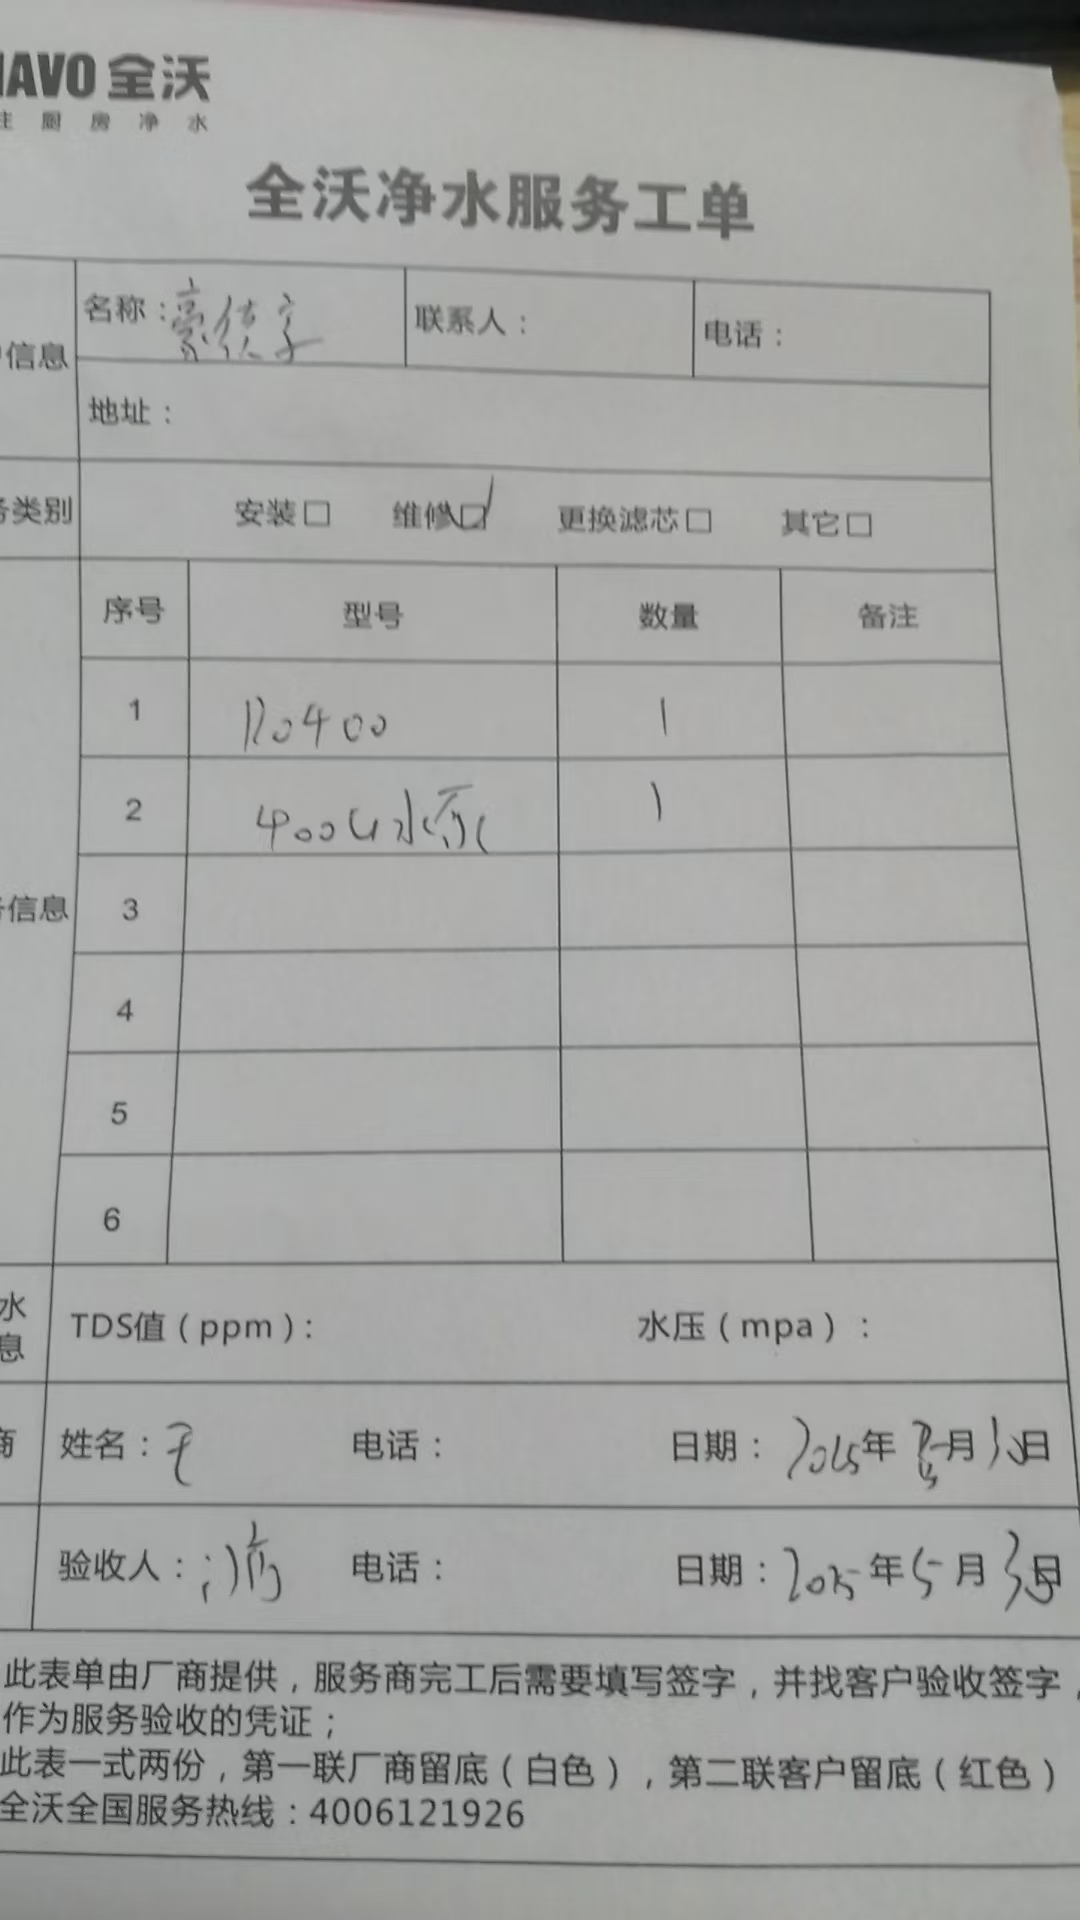 AVO 全沃
注 厨 房 净 水
全沃净水服务工单
信息
名称：豪佶字 联系人： 电话：
地址：
务类别 安装□ 维修□ 更换滤芯□ 其它□
序号 型号 数量 备注
1 RO400 1
2 400G水泵 1
信息 3
4
5
6
水
息 TDS值（ppm）： 水压（mpa）：
商 姓名： 电话： 日期：2025年5月30日
验收人： 电话： 日期：2025年5月30日
此表单由厂商提供，服务商完工后需要填写签字，并找客户验收签字，
作为服务验收的凭证；
此表一式两份，第一联厂商留底（白色），第二联客户留底（红色）
全沃全国服务热线：4006121926